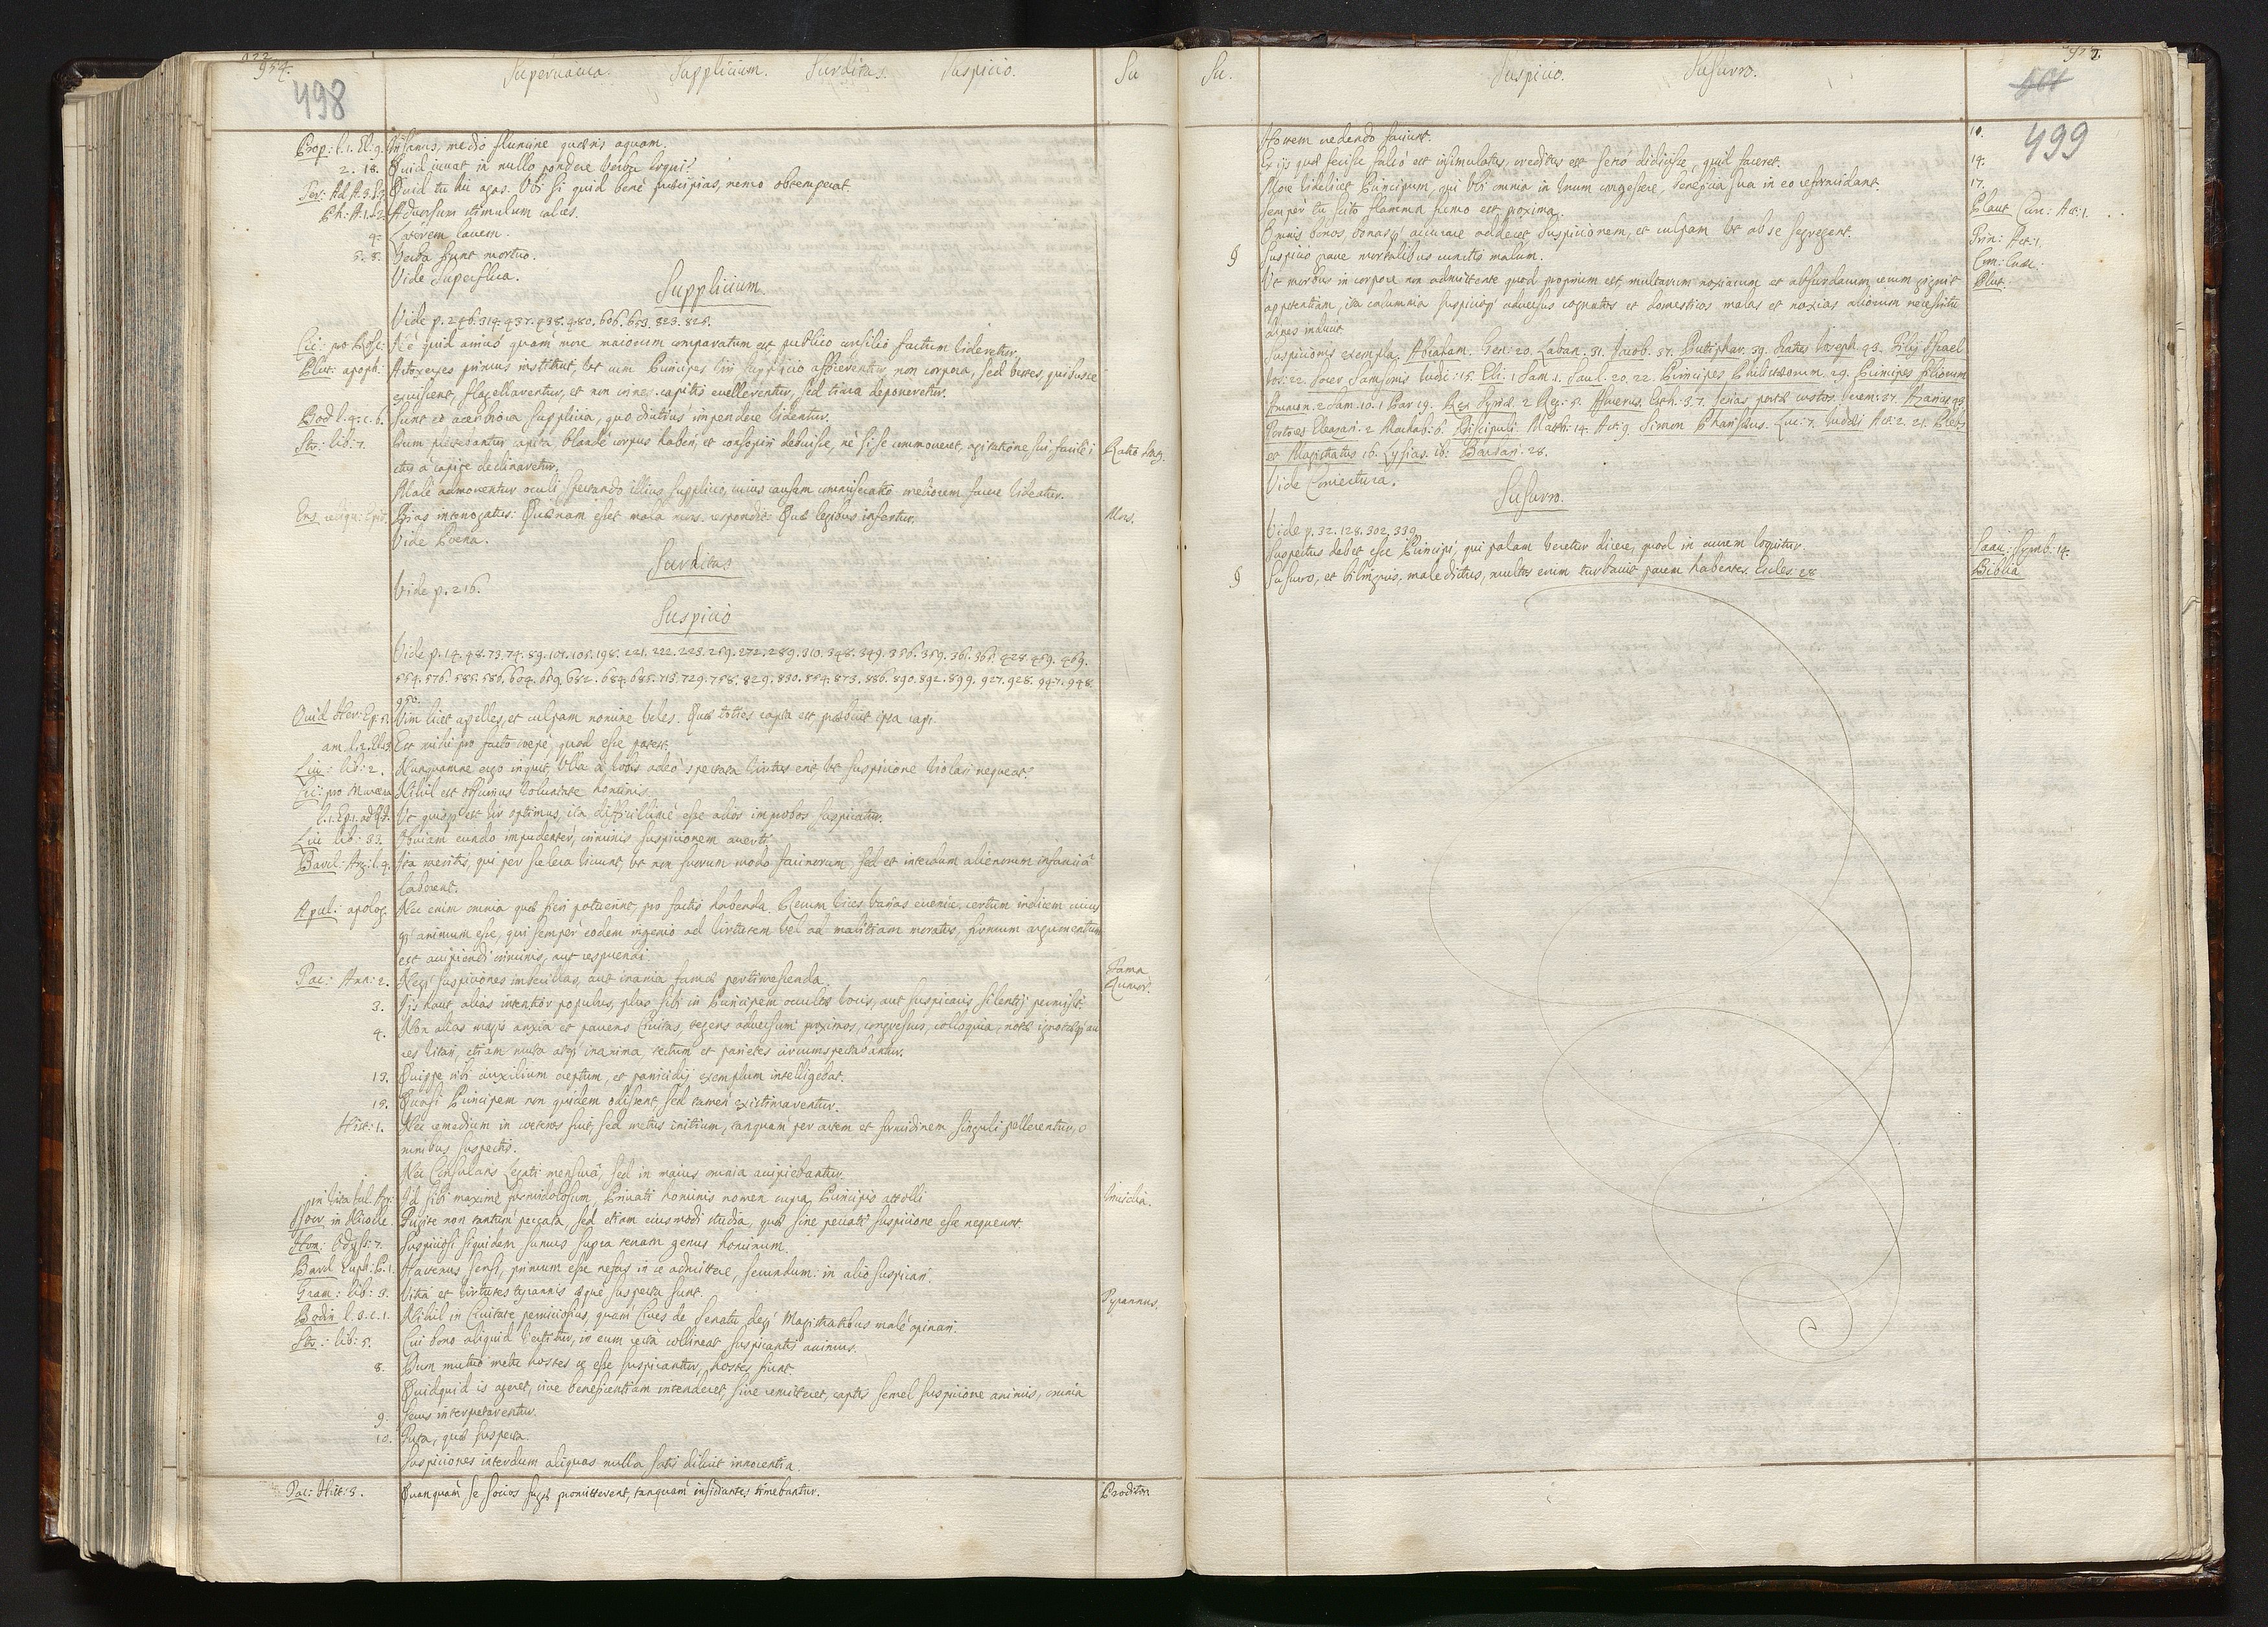 954.
498
Superuacua. Supplicium. Surditas. Suspicio. Su
Prop: l. 1. El: 9. Insanus, medio flumine quæris aquam.
2. 18. Quid iuuat in nullo pondere verba loqui?
Ter: Ad. A. 3. S. 3. Quid tu hic agas. Vbi si quid benè præcipias, nemo obtemperat.
Ph: A. 1. 2. Aduersum stimulum calces.
4. Laterem lauem.
5. 8. Verba fiunt mortuo.
Vide Superflua.
Supplicium.
Vide p. 246. 314. 437. 438. 480. 606. 663. 823. 826.
Cic: pro Rosc: Nè quid aliud quàm more maiorum comparatum est publico consilio factum videretur.
Plut: apoph: Artaxerxes primus instituit, vt cum Principes viri supplicio afficerentur, non corpora, sed vestes, quibus se
exuissent, flagellarentur, et non crines capitis euellerentur, sed tiara deponeretur.
Bod l. 4. c. 6. Sunt eò acerbiora supplicia, quo diutiùs impendere videntur.
Str: lib: 7. Dum plectebantur capita blandè corpus haberi, et consopiri debuisse, nè si se commoueret, agitatione sui, facilè i Ratio
ctus à capite declinaretur.
Malè admouentur oculi spectando illius supplicio, cuius causam commiseratio meliorem facere videatur.
Bias interrogatus: Quænam esset mala mors: respondit: Quæ legibus infertur. Mors.
Vide Poena.
Surditas
Vide p. 216.
Suspicio
Vide p. 14. 48. 73. 74. 89. 101. 105. 198. 221. 222. 223. 269. 272. 289. 310. 348. 349. 356. 359. 361. 365. 428. 459. 469.
554. 576. 585. 586. 604. 659. 682. 684. 685. 715. 729. 758. 829. 830. 854. 873. 886. 890. 892. 899. 927. 928. 947. 948.
950.
Ouid Her: Ep: 5. Vim licet apelles, et culpam nomine veles. Quæ toties rapta est, præbuit ipsa rapi.
am. l. 2. El. 3. Est mihi pro facto sæpè, quod esse potest.
Liu: lib: 2. Nunquamne ergo inquit, Vlla à vobis adeò spectata virtus erit vt suspicione violari nequeat?
Cic: pro Murena Nihil est obscurius voluntate hominis.
l. 1. Ep. 1. ad Q. f. Vt quisq; est vir optimus, ita difficillimè esse alios improbos suspicatur.
Liu lib: 33. Obuiam eundo impudenter, criminis suspicionem auerti.
Barcl: Arg: l. 4. Ita meritis, qui per scelera viuunt, vt non suorum modo facinorum, sed et interdum alienorum infamiâ
laborent.
Apul: apolog. Nec enim omnia quæ fieri potuerint, pro factis habenda. Rerum vices varias euenire, certum indicem cuius
q; animum esse, qui semper eodem ingenio ad virtutem vel ad malitiam moratus, firmum argumentum
est accipiendi criminis, aut respuendi.
Tac: Ann: 2. Neq; suspiciones imbecillas, aut inania famæ pertimescenda. Fama
3. Iis haut alias intentior populus, plus sibi in Principem occultæ vocis, aut suspicacis silentij permisit. Rumor.
4. Non alias magis anxia et pauens Ciuitas, tegens aduersum proximos, congressus, colloquia, notæ ignotæq; au
res vitari, etiam muta atq; inanima, tectum et parietes circumspectabantur.
13. Quippe sibi auxilium ereptum, et parricidij exemplum intelligebat.
15. Quasi Principem non quidem odissent, sed tamen existimarentur.
Hist: 1. Nec remedium in ceteros fuit, sed metus initium, tanquam per artem et formidinem singuli pellerentur, o
mnibus suspectis.
Nec Consularis Legati mensurâ, sed in maius omnia accipiebantur.
in Vita Iul. Agr: Id sibi maximè formidolosum, Priuati hominis nomen supra Principis attolli Inuidia.
Isocr. in Nicocle. Fugite non tantum peccata, sed etiam eiusmodi studia, quæ sine peccati suspicione esse nequeunt.
Hom: Odyss: 7. Suspiciosi siquidem sumus supra terram genus hominum.
Barcl Euph: P. 1. Hactenus sensi, primum esse nefas in se admittere, secundum: in alio suspicari.
Gram: lib: 3. Vita et virtutes tyrannis æquè suspecta sunt. Tyrannus.
Bodin l. 3. c. 1. Nihil in Ciuitate perniciosius, quàm Ciues de Senatu deq; Magistratibus malè opinari.
Str: lib: 5. Cui bono aliquid vertitur, in eum rectà collineat suspicantis animus.
8. Dum mutuò metu hostes se esse suspicantur, hostes fiunt.
Quidquid is ageret, siue beneficentiam intenderet, siue remitteret, captis semel suspicione animis, omnia
9. secus interpretarentur.
10. Tuta, quæ suspecta.
Suspiciones interdum aliquas nulla satis diluit innocentia.
Tac: Hist: 3. Quanquam se socios fugæ promitterent, tanquam insidiantes timebantur. Proditor
Su. Suspicio. Susurro.
499
Hostem credendo faciunt. 10.
Ex ijs quæ scisse falsò est insimulatus, creditus est serò didicisse, quid faceret. 14.
More videlicet Principum, qui vbi omnia in vnum congessere, beneficia sua in eo reformidant. 17.
Semper tu scito flamma fumo est proxima. Plaut Cur: Act: 1.
Omnis bonos, bonasq; accurare addecet Suspicionem, et culpam vt ab se segregent. Trin: Act: 1.
§ Suspicio graue mortalibus cunctis malum.
Vt morbus in corpore non admittente quod proprium est, multarum noxiarum et absurdarum rerum gignit Plut.
appetentiam, ita calumnia suspicioq; aduersus cognatos et domesticos malas et noxias aliorum necessitu
dines inducit.
Suspicionis exempla. Abraham. Gen: 20. Laban. 31. Iacob. 37. Putiphar. 39. fratres Ioseph. 43. Filij Israel
Ios: 22. Socer Samsonis Iudic: 15. Eli: 1 Sam 1. Saul. 20. 22. Principes Philistæorum. 29. Principes filiorum
Ammon. 2 Sam. 10. 1 Par 19. Rex Syriæ 2 Reg: 5. Assuerus. Esth: 3. 7. Ierias portæ custos. Ierem: 37. Azarias 43
Tortores Eleazari. 2 Machab: 6. Discipuli. Matth: 14. Act: 9. Simon Pharisæus. Luc: 7. Iudæi Act: 2. 21. Plebs
et Magistratus 16. Lysias. ib: Barbari. 28.
Vide Coniectura.
Susurro.
Vide p. 32. 128. 302. 339.
Suspectus debet esse Principi, qui palam veretur dicere, quod in aurem loquitur. Saau: Symb: 14.
§ Susurro, et bilinguis, maledictus, multos enim turbauit pacem habentes. Eccles: 28 Biblia